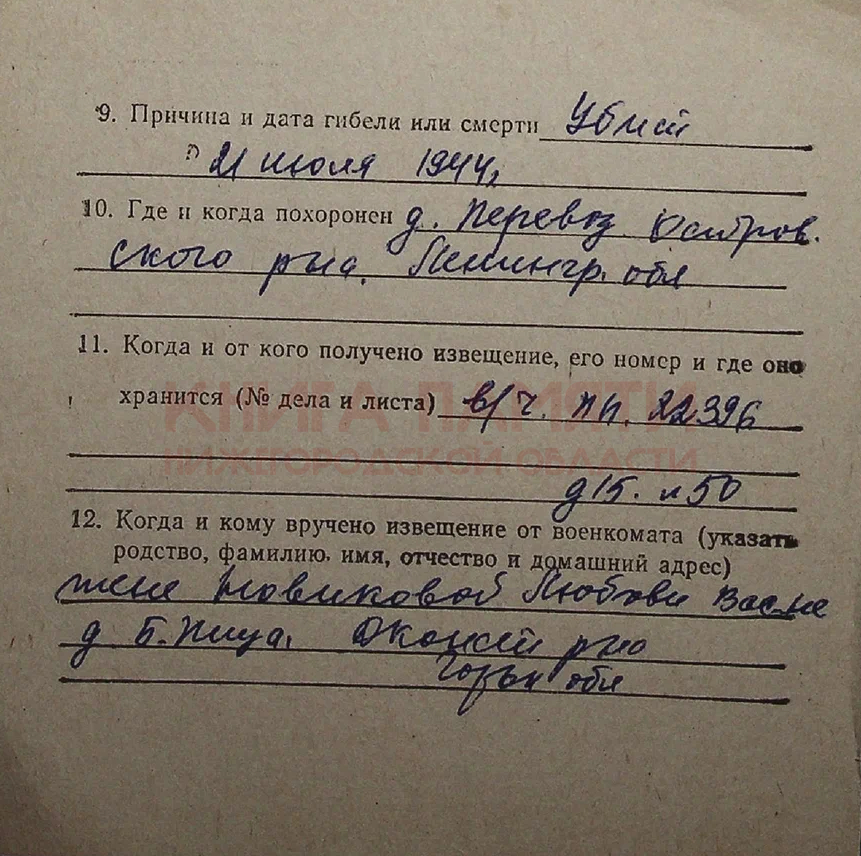 9. Причина и дата гибели или смерти Убит
21 июля 1944 г.
10. Где и когда похоронен д. Перевоз Остров.
ского р-на. Ленингр. обл
11. Когда и от кого получено извещение, его номер и где оно
КНИГА ПАМЯТИ
хранится (№ дела и листа) в/ч. пп. 22396
НИЖЕГОРОДСКОЙ ОБЛАСТИ
д 15. л 50
12. Когда и кому вручено извещение от военкомата (указать
родство, фамилию, имя, отчество и домашний адрес)
жене Новиковой Любови
д Б. Пица. р-на
Горьк обл